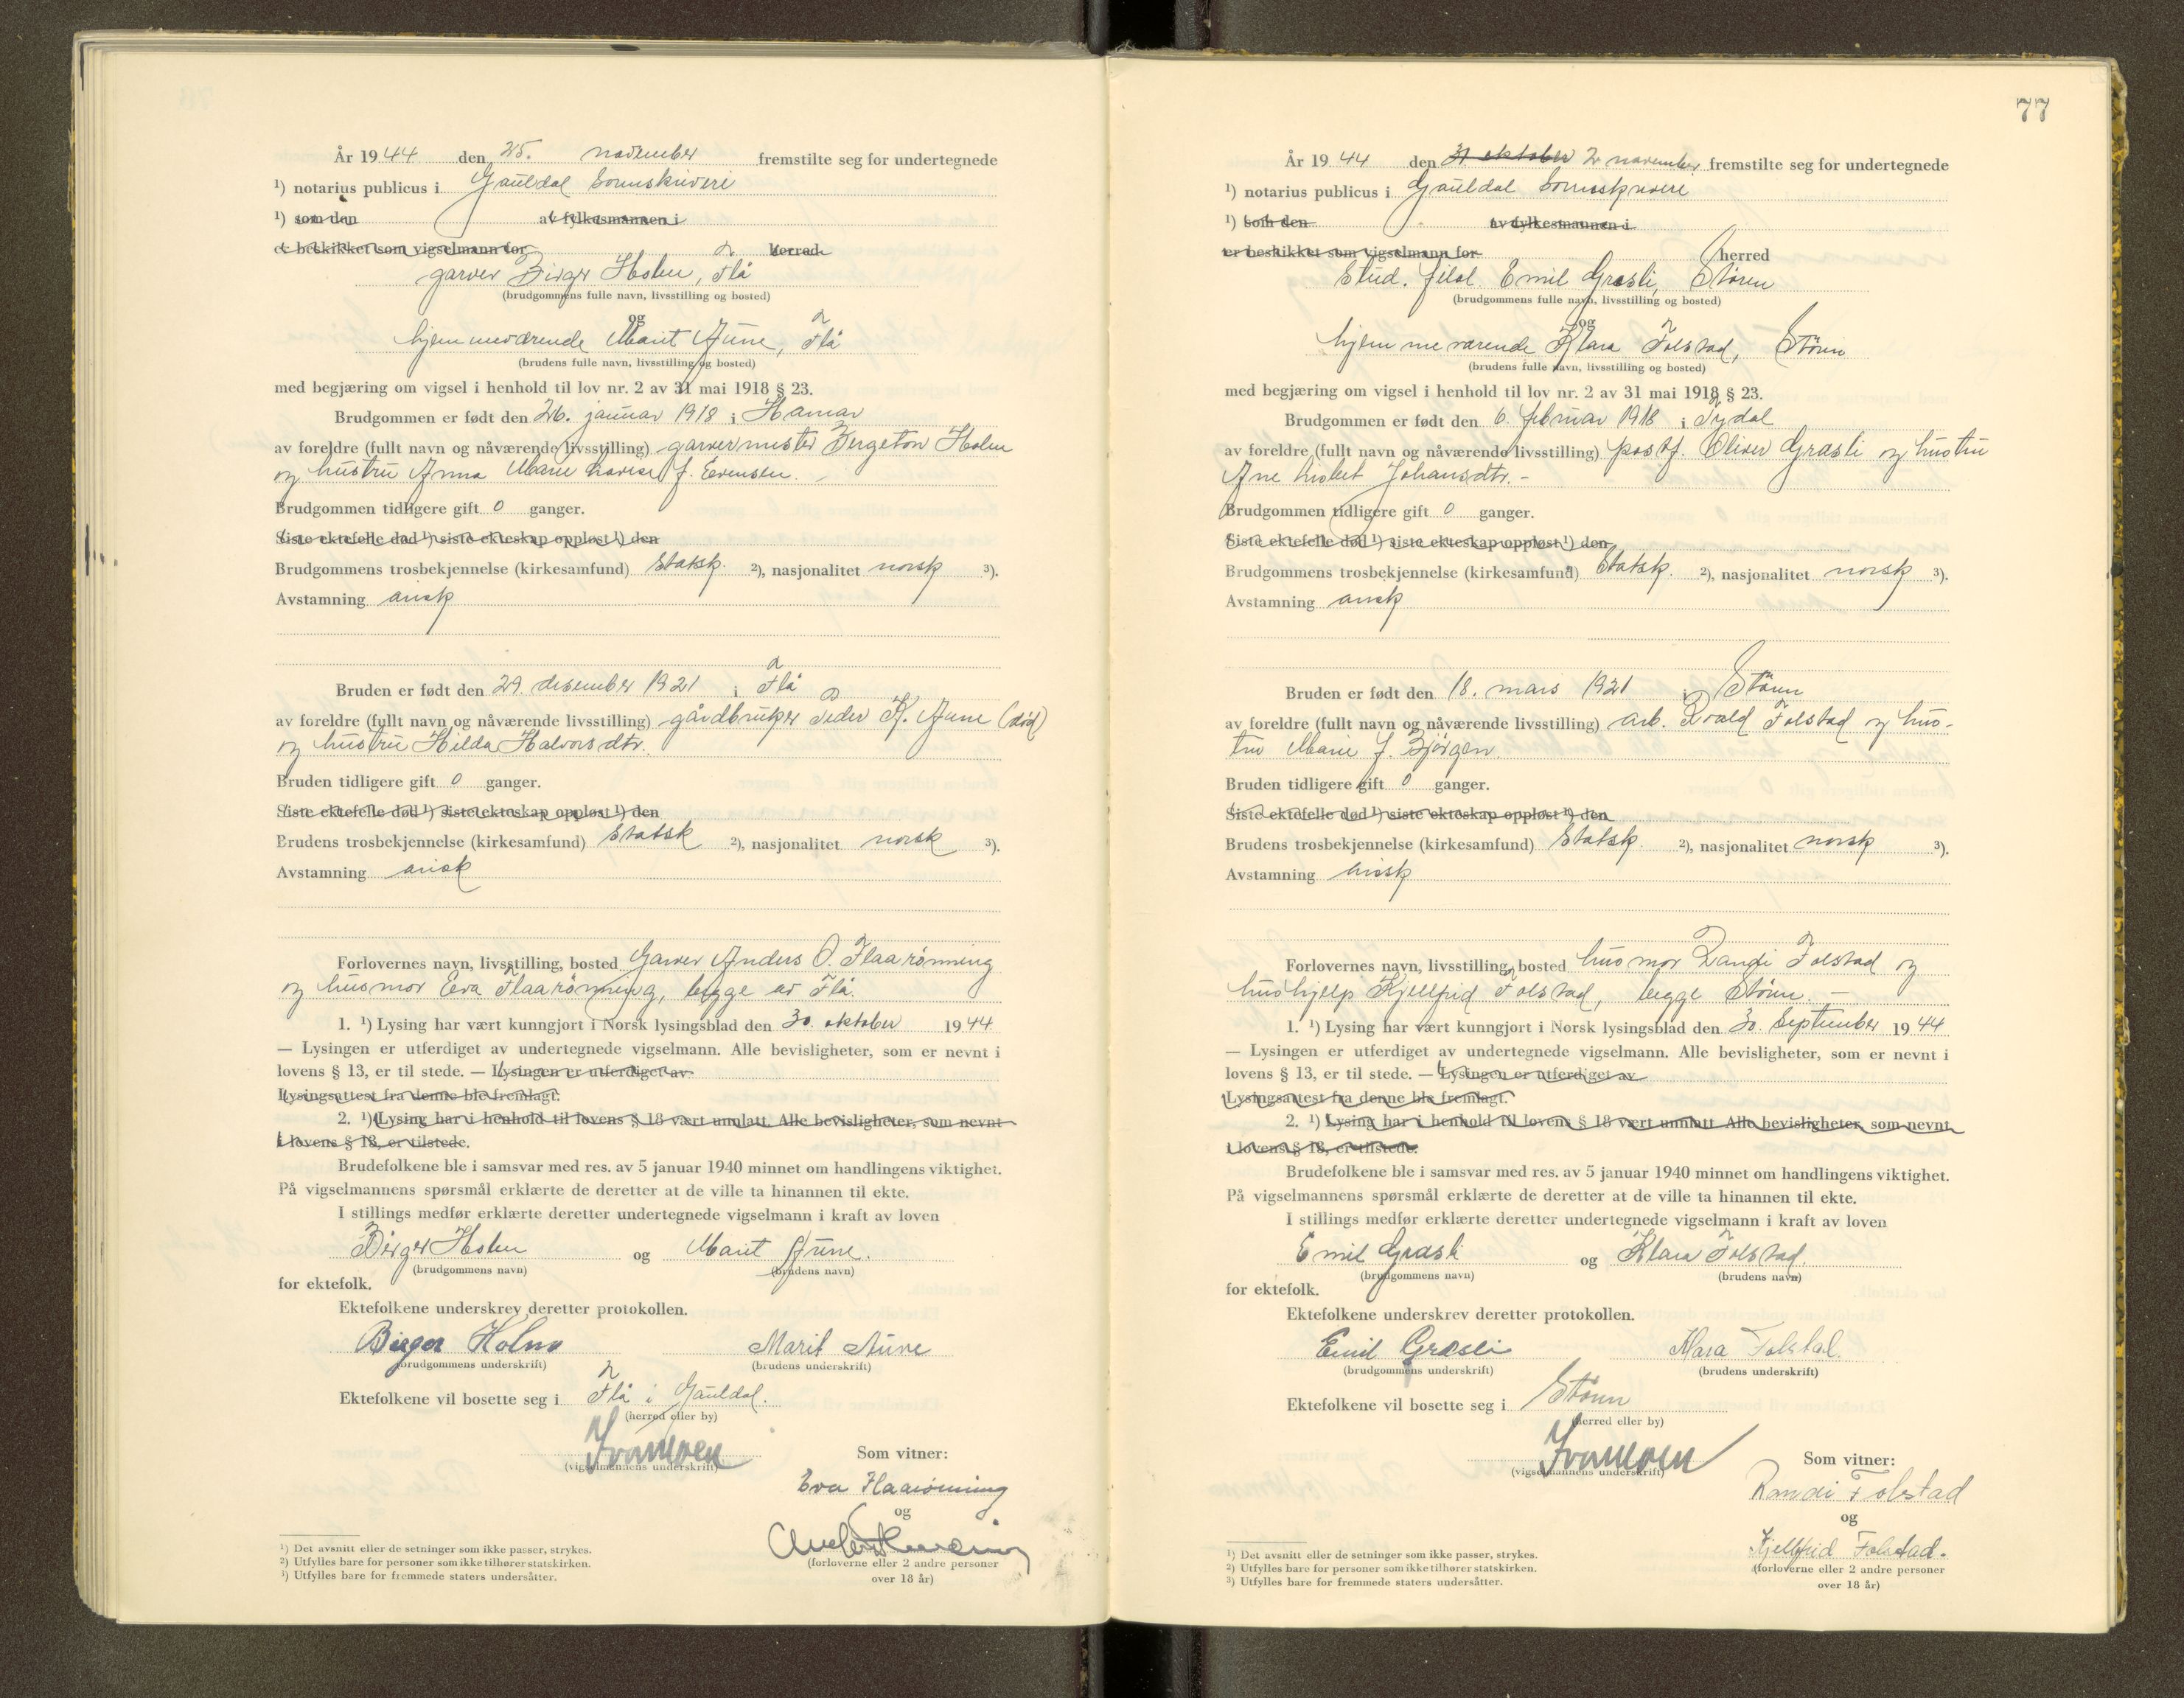 År 1944 den 25. november fremstilte seg for undertegnede
¹) notarius publicus i Gauldal Sorenskriveri
¹) som den av fylkesmannen i
er beskikket som vigselmann for herred
garver Birger Holm, Flå
(brudgommens fulle navn, livsstilling og bosted)
og
hjemmeværende Marit Aune, Flå
(brudens fulle navn, livsstilling og bosted)
med begjæring om vigsel i henhold til lov nr. 2 av 31 mai 1918 § 23.
Brudgommen er født den 26. januar 1918 i Hamar
av foreldre (fullt navn og nåværende livsstilling) garvermester Bergeton Holm
og hustru Anna Marie Lovise f. Evensen.
Brudgommen tidligere gift 0 ganger.
Siste ektefelle død ¹) siste ekteskap oppløst ¹) den
Brudgommens trosbekjennelse (kirkesamfund) Statsk. ²), nasjonalitet norsk ³).
Avstamning arisk
Bruden er født den 29. desember 1921 i Flå
av foreldre (fullt navn og nåværende livsstilling) gårdbruker Peder K. Aune (død)
og hustru Hilda Halvorsdtr.
Bruden tidligere gift 0 ganger.
Siste ektefelle død ¹) siste ekteskap oppløst ¹) den
Brudens trosbekjennelse (kirkesamfund) Statsk ²), nasjonalitet norsk ³).
Avstamning arisk
Forlovernes navn, livsstilling, bosted Garver Anders O. Flaarønning
og husmor Eva Flaarønning, begge av Flå.
1. ¹) Lysing har vært kunngjort i Norsk lysingsblad den 30. oktober 1944
— Lysingen er utferdiget av undertegnede vigselmann. Alle bevisligheter, som er nevnt i
lovens § 13, er til stede. — Lysingen er utferdiget av
Lysingsattest fra denne ble fremlagt.
2. ¹) Lysing har i henhold til lovens § 18 vært unnlatt. Alle bevisligheter, som nevnt
i lovens § 18, er tilstede.
Brudefolkene ble i samsvar med res. av 5 januar 1940 minnet om handlingens viktighet.
På vigselmannens spørsmål erklærte de deretter at de ville ta hinannen til ekte.
I stillings medfør erklærte deretter undertegnede vigselmann i kraft av loven
Birger Holm og Marit Aune.
(brudgommens navn) (brudens navn)
for ektefolk.
Ektefolkene underskrev deretter protokollen.
Birger Holm Marit Aune
(brudgommens underskrift) (brudens underskrift)
Ektefolkene vil bosette seg i Flå i Gauldal.
(herred eller by)
(vigselmannens underskrift) Som vitner:
Eva Flaarönning
og
(forloverne eller 2 andre personer
over 18 år)
¹) Det avsnitt eller de setninger som ikke passer, strykes.
²) Utfylles bare for personer som ikke tilhører statskirken.
³) Utfylles bare for fremmede staters undersåtter.
77
År 1944 den 31 oktober 2 november fremstilte seg for undertegnede
¹) notarius publicus i Gauldal Sorenskriveri
¹) som den av fylkesmannen i
er beskikket som vigselmann for herred
Stud. filol. Emil Græsli, Støren
(brudgommens fulle navn, livsstilling og bosted)
og
hjemmeværende Klara Folstad, Støren
(brudens fulle navn, livsstilling og bosted)
med begjæring om vigsel i henhold til lov nr. 2 av 31 mai 1918 § 23.
Brudgommen er født den 6. februar 1918 i Tydal
av foreldre (fullt navn og nåværende livsstilling) postf. Oliver Græsli og hustru
Ane Lisbet Johansdtr. -
Brudgommen tidligere gift 0 ganger.
Siste ektefelle død ¹) siste ekteskap oppløst ¹) den
Brudgommens trosbekjennelse (kirkesamfund) Statsk. ²), nasjonalitet norsk ³).
Avstamning arisk
Bruden er født den 18. mars 1921 i Støren
av foreldre (fullt navn og nåværende livsstilling) arb. Roald Folstad og hus-
tru Marie f. Bjørgen.
Bruden tidligere gift 0 ganger.
Siste ektefelle død ¹) siste ekteskap oppløst ¹) den
Brudens trosbekjennelse (kirkesamfund) Statsk. ²), nasjonalitet norsk ³).
Avstamning arisk
Forlovernes navn, livsstilling, bosted husmor Randi Folstad og
hushjelp Kjellfrid Folstad, begge Støren. —
1. ¹) Lysing har vært kunngjort i Norsk lysingsblad den 30. September 1944
— Lysingen er utferdiget av undertegnede vigselmann. Alle bevisligheter, som er nevnt i
lovens § 13, er til stede. — Lysingen er utferdiget av
Lysingsattest fra denne ble fremlagt.
2. ¹) Lysing har i henhold til lovens § 18 vært unnlatt Alle bevisligheter, som nevnt
i lovens § 18, er tilstede.
Brudefolkene ble i samsvar med res. av 5 januar 1940 minnet om handlingens viktighet.
På vigselmannens spørsmål erklærte de deretter at de ville ta hinannen til ekte.
I stillings medfør erklærte deretter undertegnede vigselmann i kraft av loven
Emil Græsli og Klara Folstad.
(brudgommens navn) (brudens navn)
for ektefolk.
Ektefolkene underskrev deretter protokollen.
Emil Græsli Klara Folstad.
(brudgommens underskrift) (brudens underskrift)
Ektefolkene vil bosette seg i Støren
(herred eller by)
(vigselmannens underskrift) Som vitner:
Randi Folstad
og
Kjellfrid Folstad.
(forloverne eller 2 andre personer
over 18 år)
¹) Det avsnitt eller de setninger som ikke passer, strykes.
²) Utfylles bare for personer som ikke tilhører statskirken.
³) Utfylles bare for fremmede staters undersåtter.